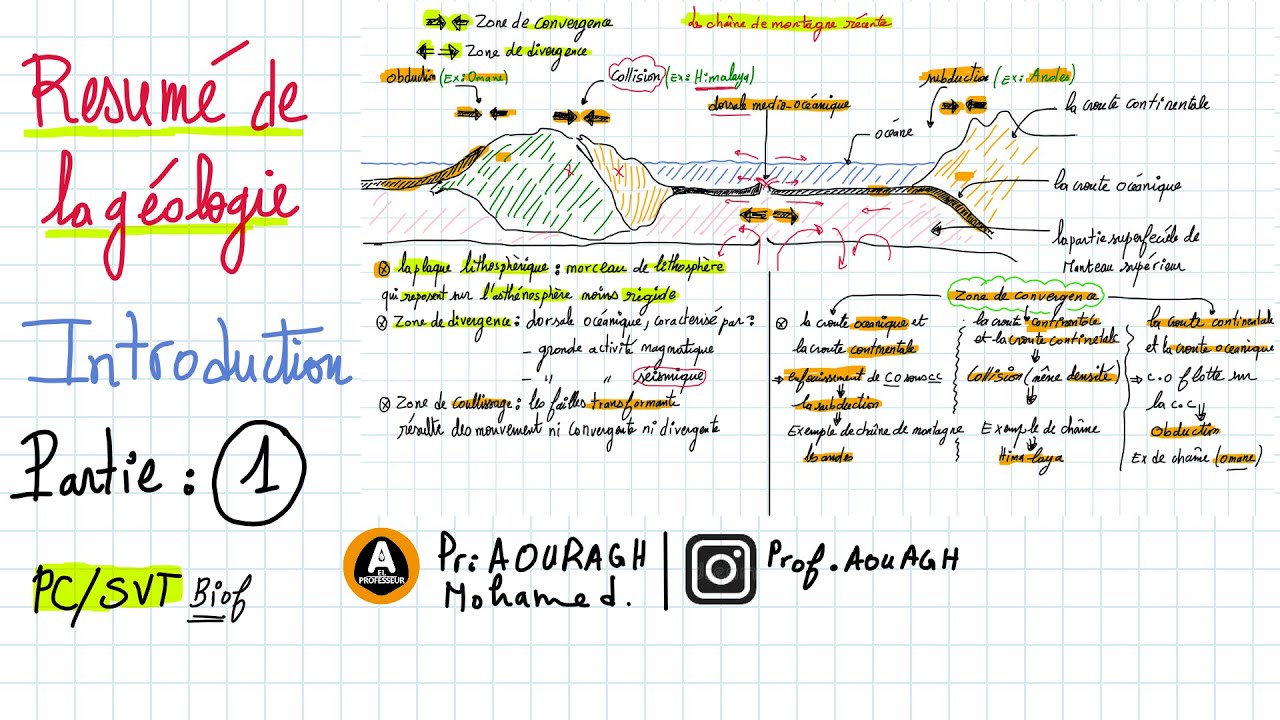 Resumé de
la géologie
Introduction
Partie : 1
PC/SVT Biof
Zone de convergence
Zone de divergence
Les chaîne de montagne récente
obduction (Ex: Omane)
Collision (Ex: Himalaya)
subduction (Ex: Andes)
dorsale medio-océanique
océane
la croute continentale
la croute océanique
la partie superfeciele de
Manteau supérieur
la plaque lithosphèrique : morceau de lithosphère
qui reposent sur l'asthénosphère moins rigide
Zone de divergence : dorsale océanique, caracterisé par :
- grande activité magmatique
- " " séismique
Zone de coullissage : les failles transformante
résulte des mouvement ni convergente ni divergente
Zone de convergence
la croute oceanique et
la croute continentale
=> enfouissement de CO sous cc
la subduction
Exemple de chaîne de montagne
les andes
la croute continentale
et la croute continetale
Collision (même densité)
Exemple de chaîne
Himalaya
la croute continentale
et la croute oceanique
=> c.o flotte sur
la c.c
Obduction
Ex de chaîne (omane)
A
EL
PROFESSEUR
Pr: AOURAGH
Mohamed.
Prof. AOUAGH